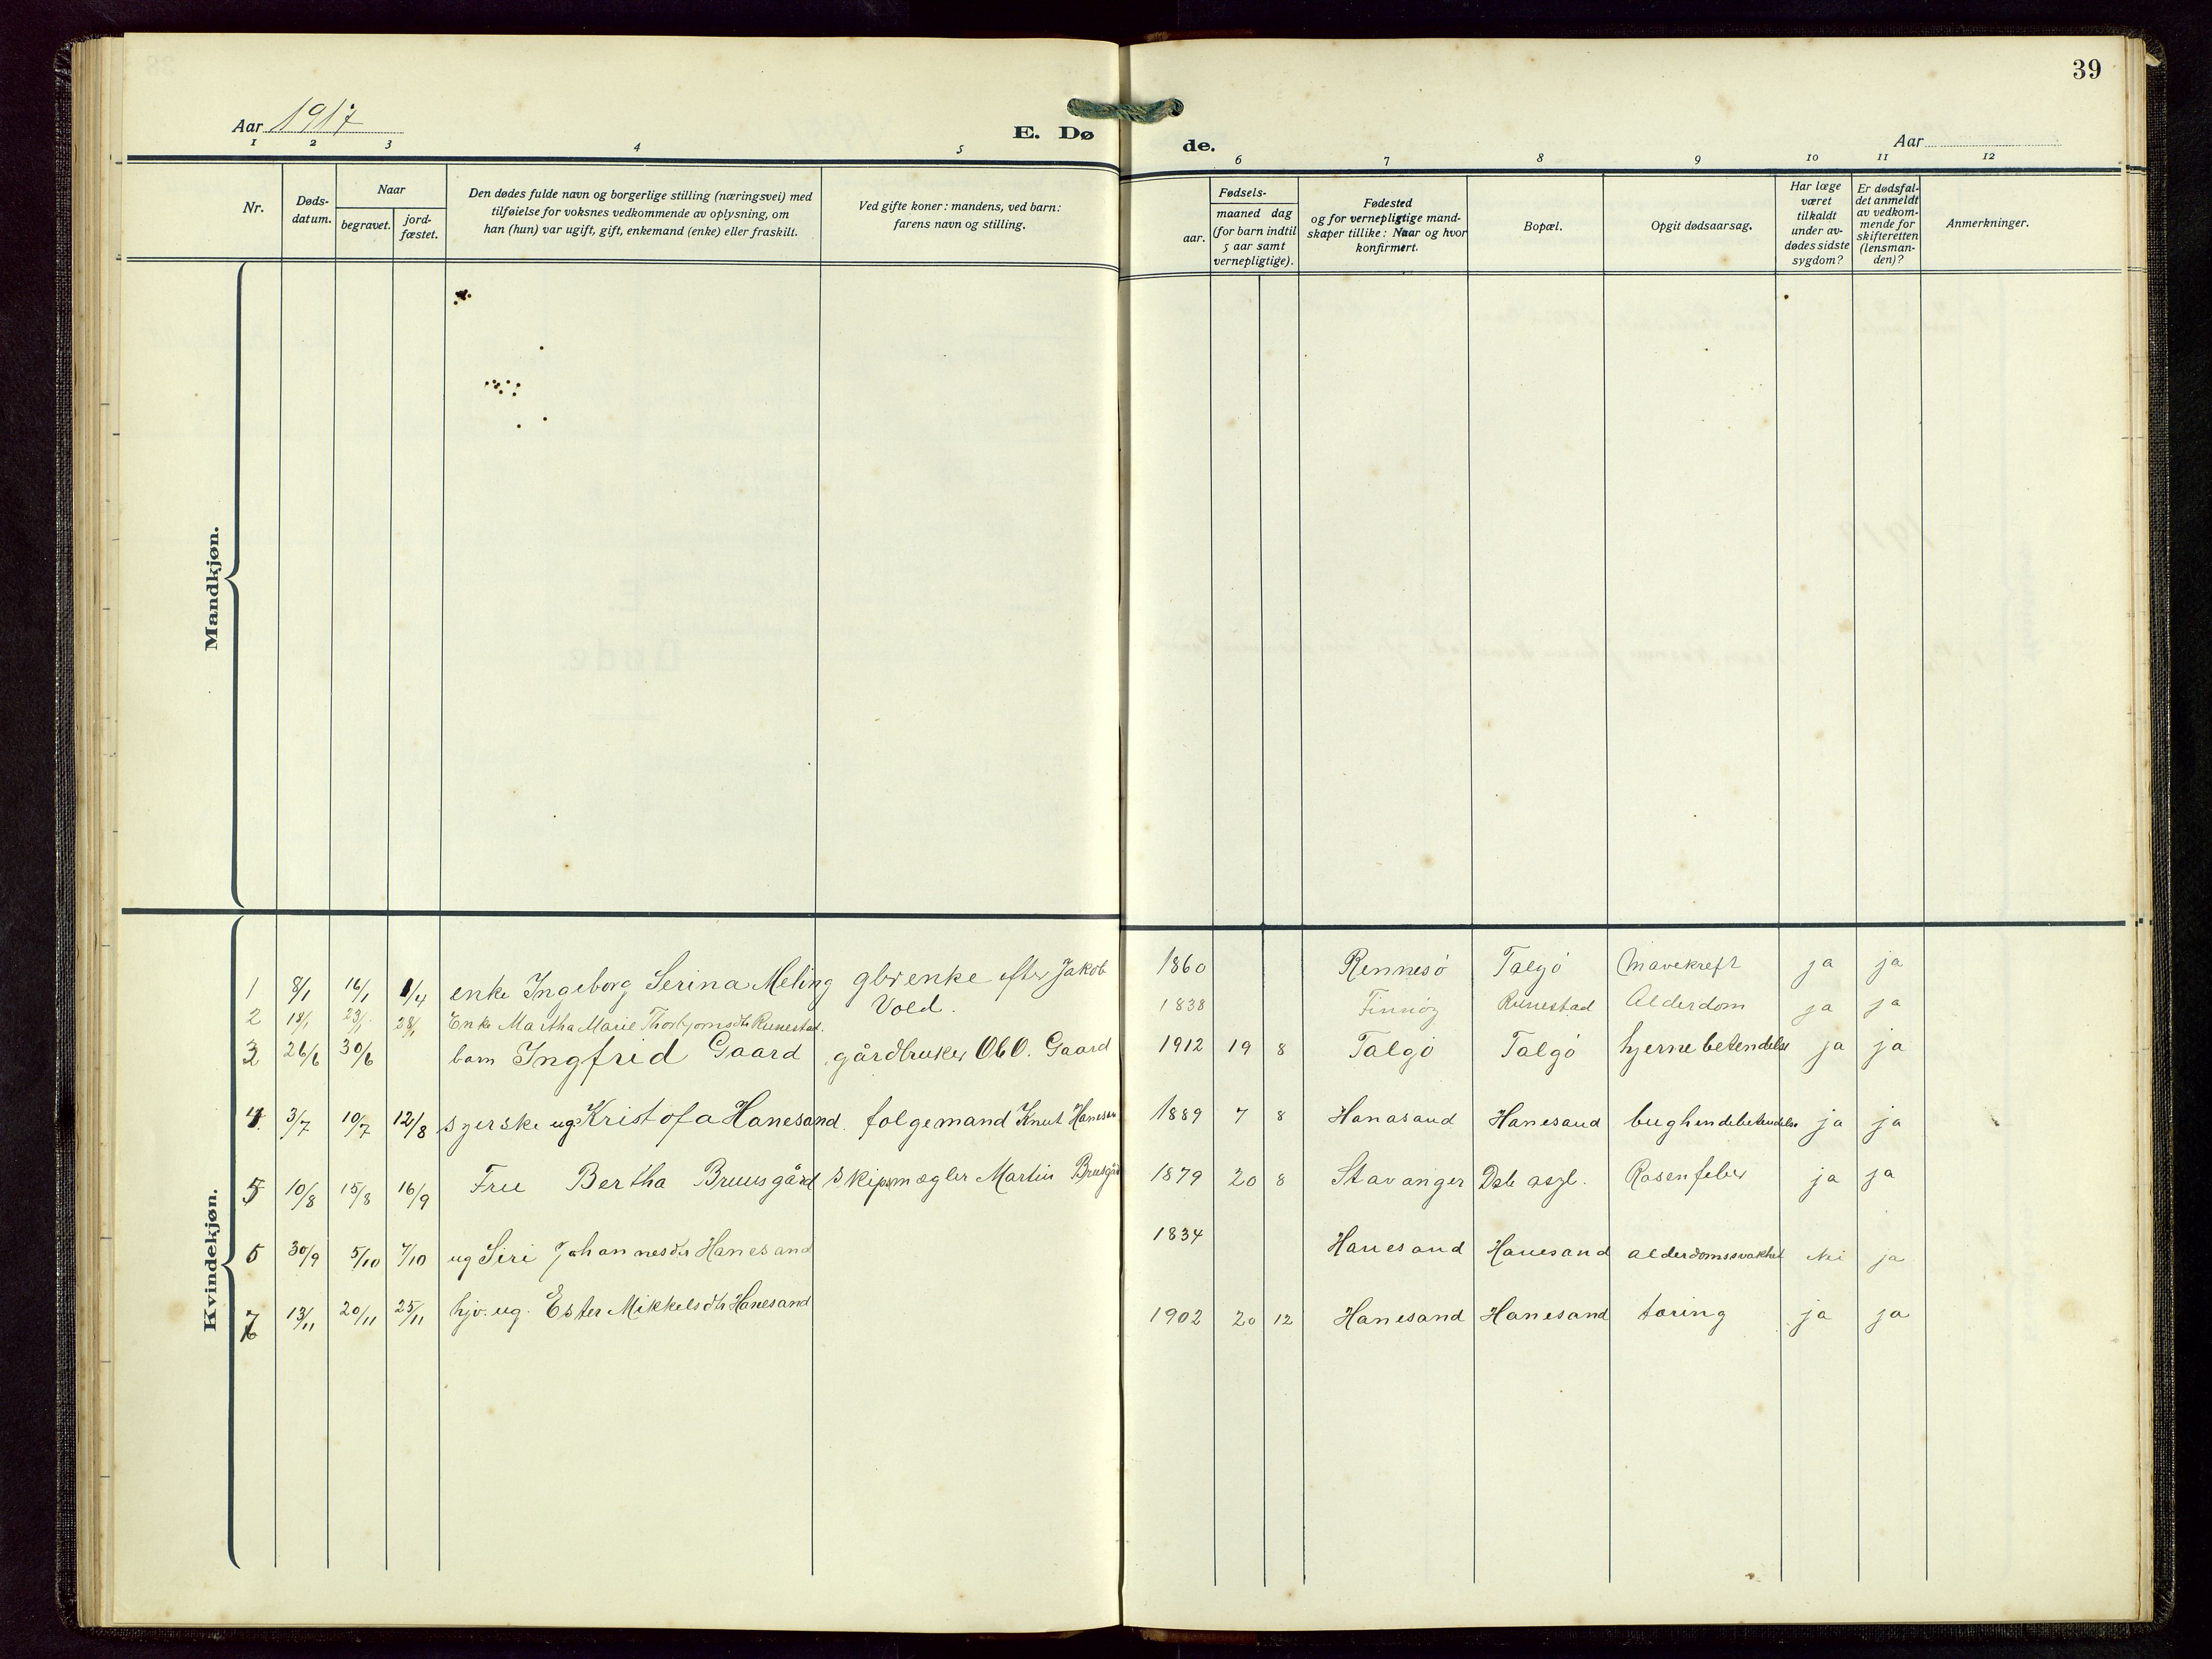 39
Aar 1917
E. Døde.
Aar
1 2 3 4 5 6 7 8 9 10 11 12
Nr.
Døds-
datum.
Naar
begravet.
jord-
fæstet.
Den dødes fulde navn og borgerlige stilling (næringsvei) med
tilføielse for voksnes vedkommende av oplysning, om
han (hun) var ugift, gift, enkemand (enke) eller fraskilt.
Ved gifte koner: mandens, ved barn:
farens navn og stilling.
Fødsels-
aar.
maaned dag
(for barn indtil
5 aar samt
vernepligtige).
Fødested
og for vernepligtige mand-
skaper tillike: Naar og hvor
konfirmert.
Bopæl.
Opgit dødsaarsag.
Har læge
været
tilkaldt
under av-
dødes sidste
sygdom?
Er dødsfal-
det anmeldt
av vedkom-
mende for
skifteretten
(lensman-
den)?
Anmerkninger.
Mandkjøn.
Kvindekjøn.
1 8/1 16/1 1/4 enke Ingeborg Serina Meling gbr enke efter Jakob Vold. 1860 Rennesö Talgö Mavekreft ja ja
2 18/1 23/1 28/1 Enke Martha Marie Thorbjørnsdtr Runestad. 1838 Finnöy Runestad Alderdom ja ja
3 26/6 30/6 barn Ingfrid Gaard gårdbruker O. O. Gaard 1912 19 8 Talgö Talgö hjernebetendelse ja ja
4 3/7 10/7 12/8 syerske ug. Kristofa Hanesand. folgemand Knut Hanesan 1889 7 8 Hanasand Hanesand bughindebetendelse ja ja
5 10/8 15/8 16/9 Frue Bertha Bruusgård skipsmægler Martin Bruusgår 1879 20 8 Stavanger Rosenfeber ja ja
6 30/9 5/10 7/10 ug Siri Johannesdtr Hanesand 1834 Hanesand Hanesand alderdomssvakhet Nei ja
7 13/11 20/11 25/11 hjv. ug. Ester Mikkelsdtr Hanesand 1902 20 12 Hanesand Hanesand tæring ja ja